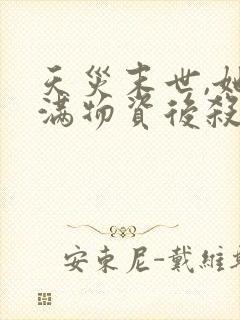 天災末世,她
滿物資後殺
安東尼-戴維斯